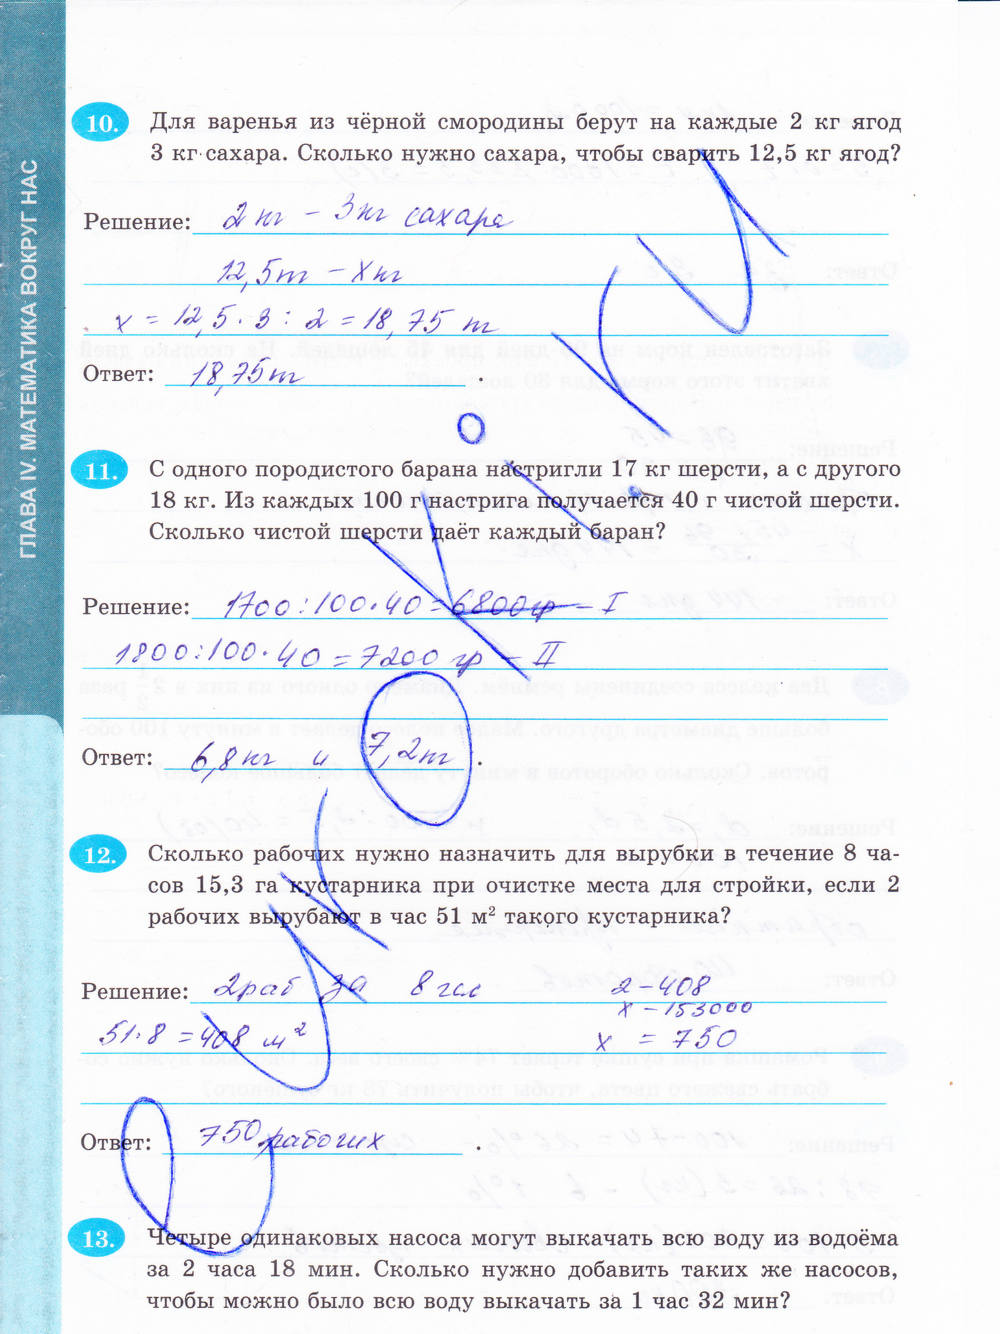 ГЛАВА IV. МАТЕМАТИКА ВОКРУГ НАС
10. Для варенья из чёрной смородины берут на каждые 2 кг ягод
3 кг сахара. Сколько нужно сахара, чтобы сварить 12,5 кг ягод?
Решение: 2 кг – 3 кг сахара
12,5 кг – х кг
х = 12,5 · 3 : 2 = 18,75 кг
Ответ: 18,75 кг .
11. С одного породистого барана настригли 17 кг шерсти, а с другого
18 кг. Из каждых 100 г настрига получается 40 г чистой шерсти.
Сколько чистой шерсти даёт каждый баран?
Решение: 1700 : 100 · 40 = 6800 гр – I
1800 : 100 · 40 = 7200 гр – II
Ответ: 6,8 кг и 7,2 кг .
12. Сколько рабочих нужно назначить для вырубки в течение 8 ча-
сов 15,3 га кустарника при очистке места для стройки, если 2
рабочих вырубают в час 51 м² такого кустарника?
Решение: 2 раб за 8 час 2 – 408
х – 153000
51 · 8 = 408 м² х = 750
Ответ: 750 рабочих .
13. Четыре одинаковых насоса могут выкачать всю воду из водоёма
за 2 часа 18 мин. Сколько нужно добавить таких же насосов,
чтобы можно было всю воду выкачать за 1 час 32 мин?